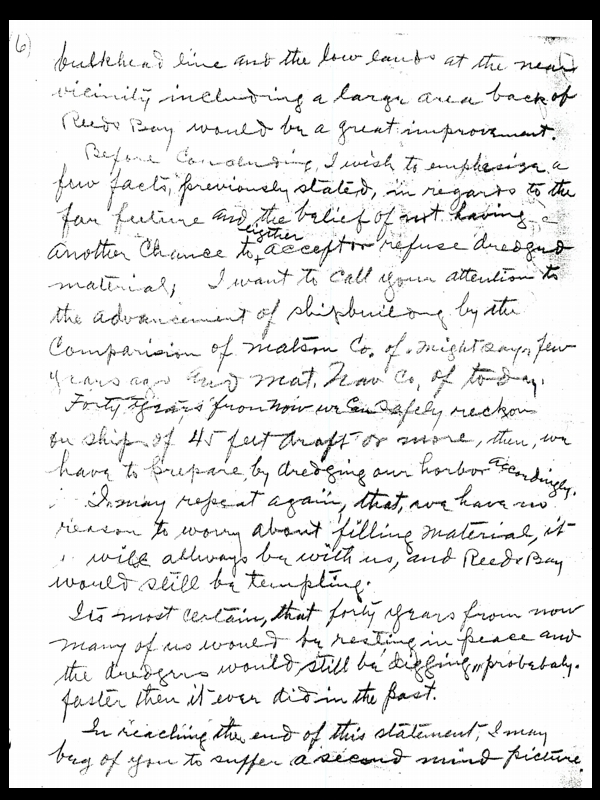 6)
bulkhead line and the low lands at the near
vicinity including a large area back of
Reeds Bay would be a great improvement.
Before Concluding, I wish to emphasize a
few facts, previously stated, in regards to the
far future and the belief of not having
another Chance to eigther accept or refuse dredged
material; I want to call your attention to
the advancement of shipbuilding by the
Comparision of Matson Co. of, might say, few
years ago and Mat. Nav Co, of to-day.
Forty years from now we can safely reckon
on ships of 45 feet draft or more, then, we
have to prepare by dredging our horbor accordingly.
I may repeat again, that, we have no
reason to worry about filling material, it
will allways be with us, and Reeds Bay
would still be tempting.
Its most certain, that forty years from now
many of us would be resting in peace and
the dredgers would still be digging, probebaly.
faster then it ever did in the past.
In reaching the end of this statement, I may
beg of you to suffer a second mind picture.